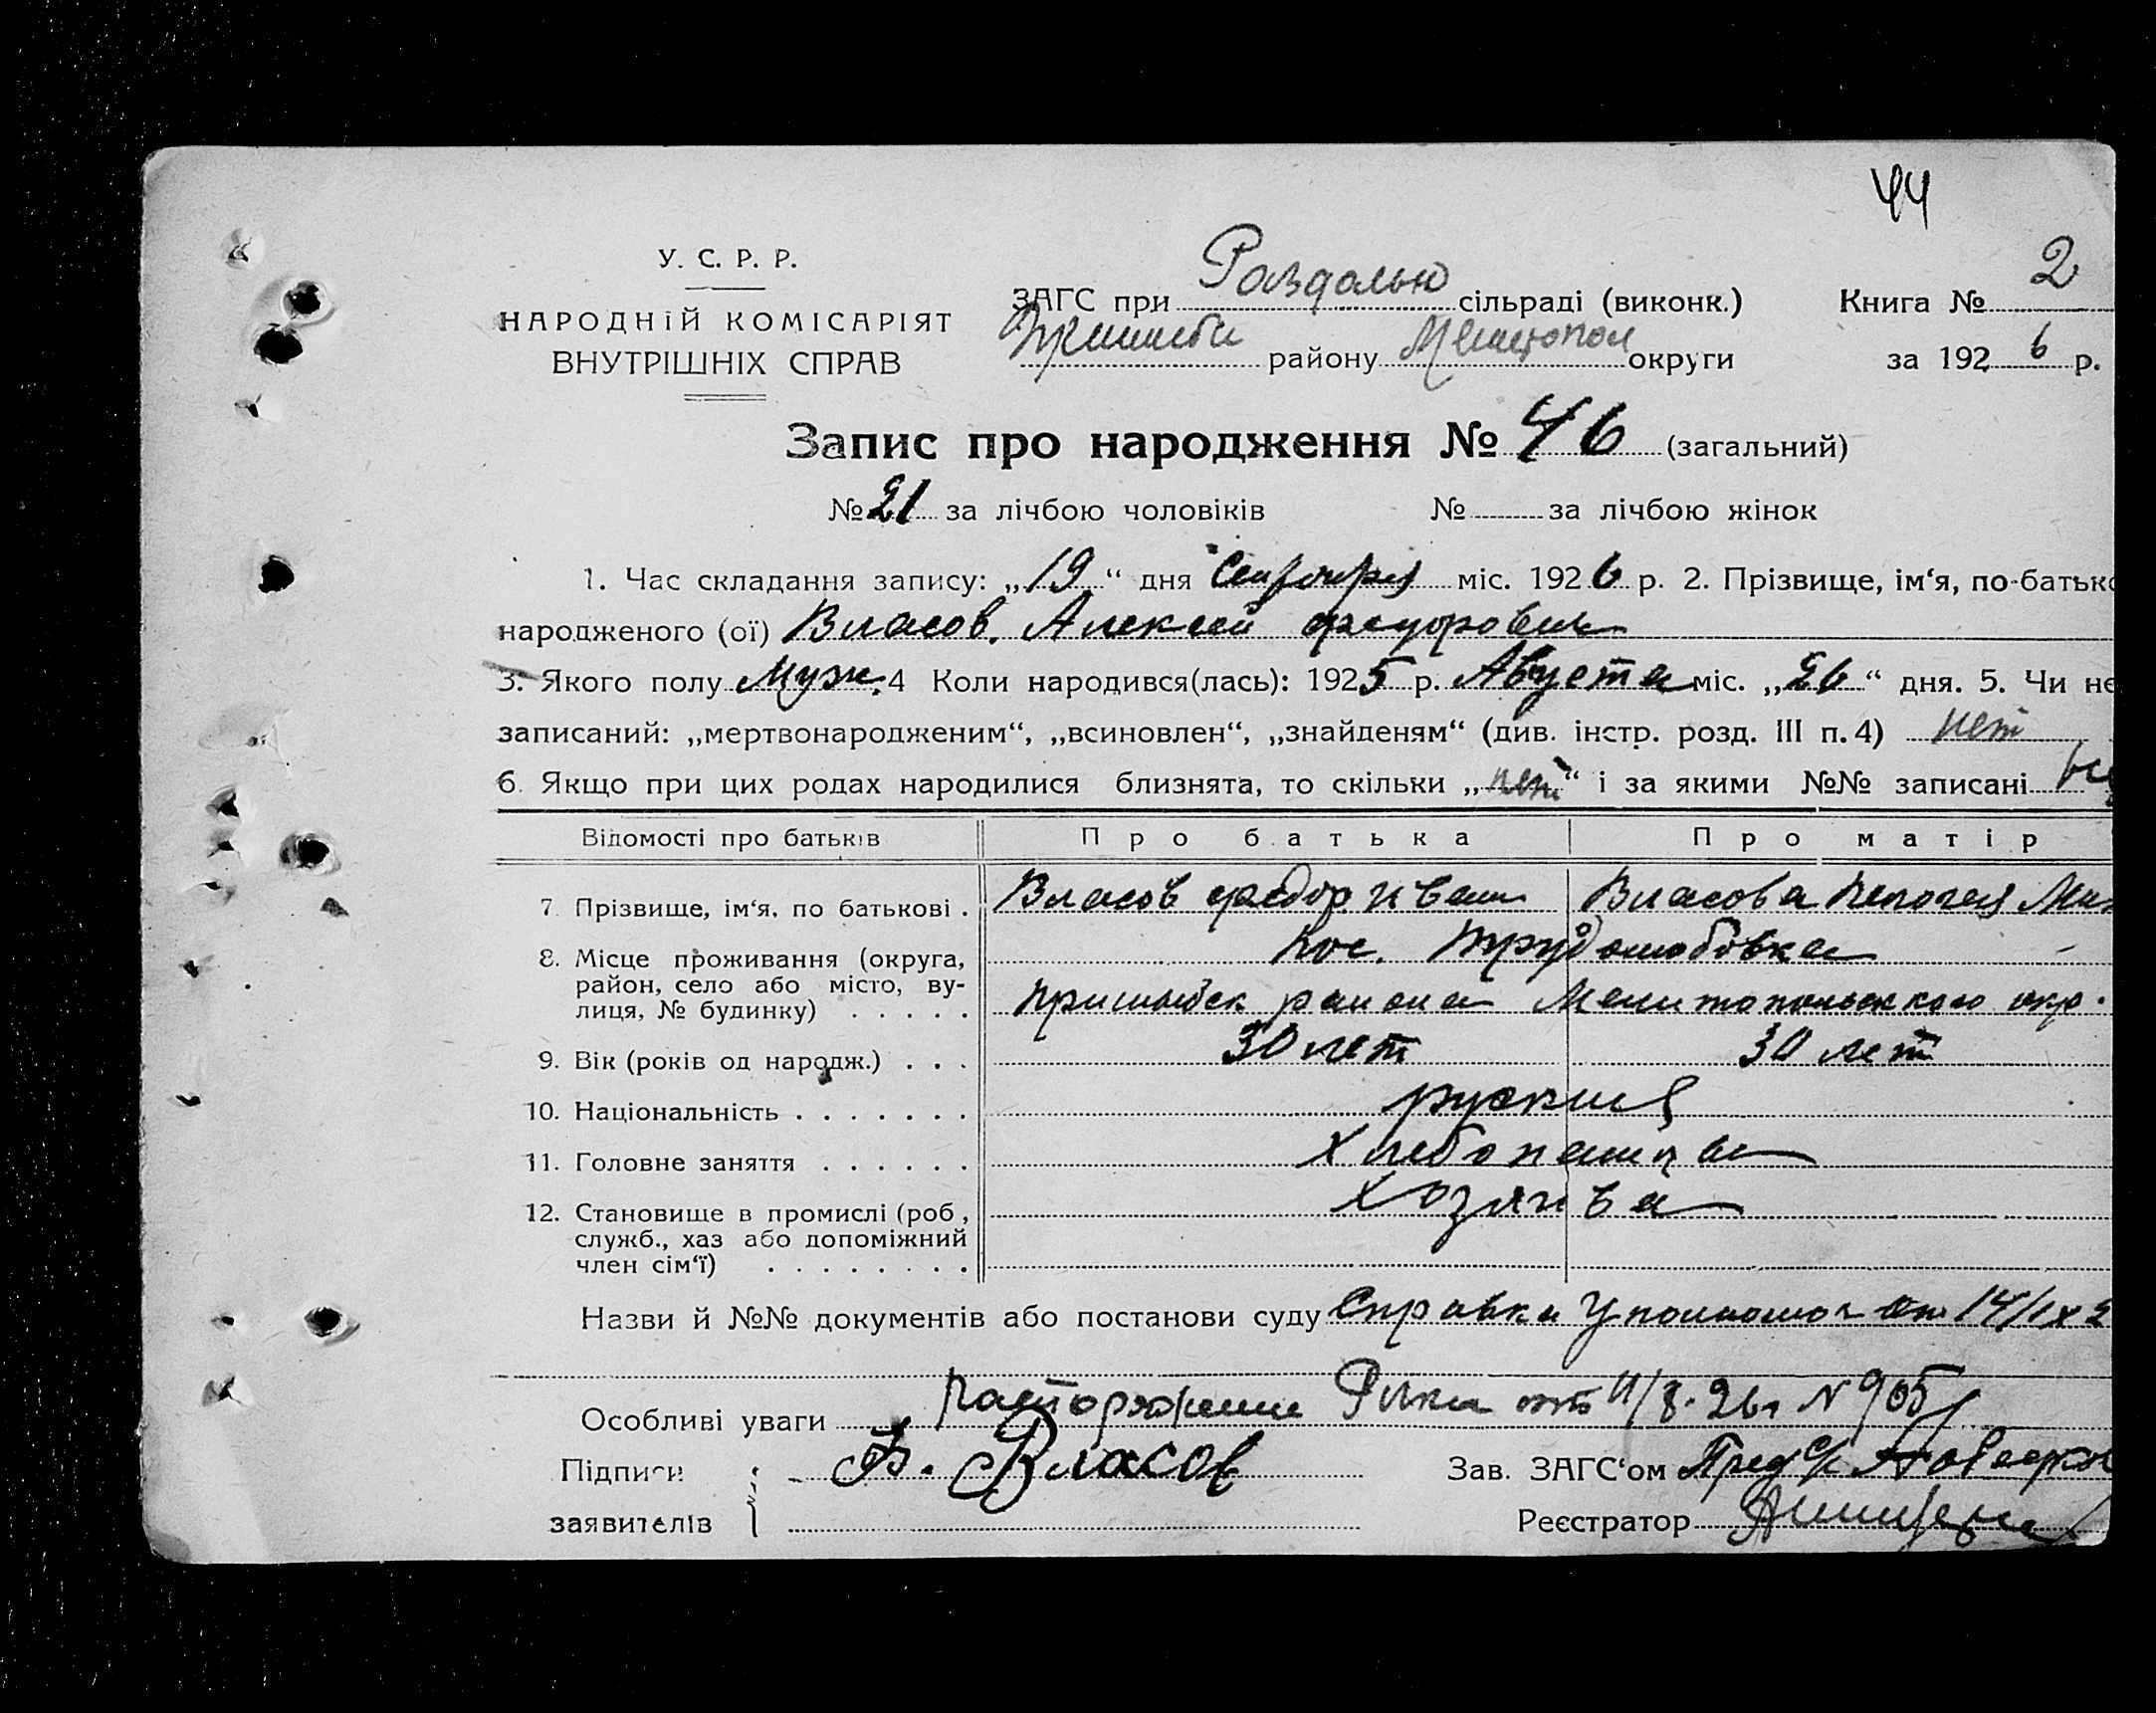 44
У. С. Р. Р.
НАРОДНІЙ КОМІСАРІЯТ
ВНУТРІШНІХ СПРАВ
ЗАГС при Роздолью сільраді (виконк.)
району Мелитопол округи
Книга № 2
за 1926 р.
Запис про народження № 46 (загальний)
№ 21 за лічбою чоловіків № за лічбою жінок
1. Час складання запису: „19“ дня Сентября міс. 1926 р. 2. Прізвище, ім‘я, по-батько
народженого (ої) Власов Алексей Федорович
3. Якого полу Муж. 4 Коли народився(лась): 1925 р. Августа міс. „26“ дня. 5. Чи не
записаний: „мертвонародженим“, „всиновлен“, „знайденям“ (див. інстр. розд. III п. 4) нет
6. Якщо при цих родах народилися близнята, то скільки „нет“ і за якими №№ записані
Відомості про батьків Про батька Про матір
7. Прізвище, ім‘я, по батькові . Власов Федор Иван Власова Пелогея Мих
8. Місце проживання (округа, район, село або місто, вулиця, № будинку) . . . . . Пос. Трудолюбовка
Пришибск района Мелитопольского окр.
9. Вік (років од народж.) . . . 30 лет 30 лет
10. Національність . . . . . . . руския
11. Головне заняття . . . . . . Хлебопашца
12. Становище в промислі (роб, служб., хаз або допоміжний член сім‘ї) . . . . . . . . Хозяива
Назви й №№ документів або постанови суду Справка Уполномог от 14/IX 2
Особливі уваги Распоряжение Рика от 11/8-26г N 905
Підписи Ф. Власов
заявителів
Зав. ЗАГС‘ом Пред с/с
Реєстратор